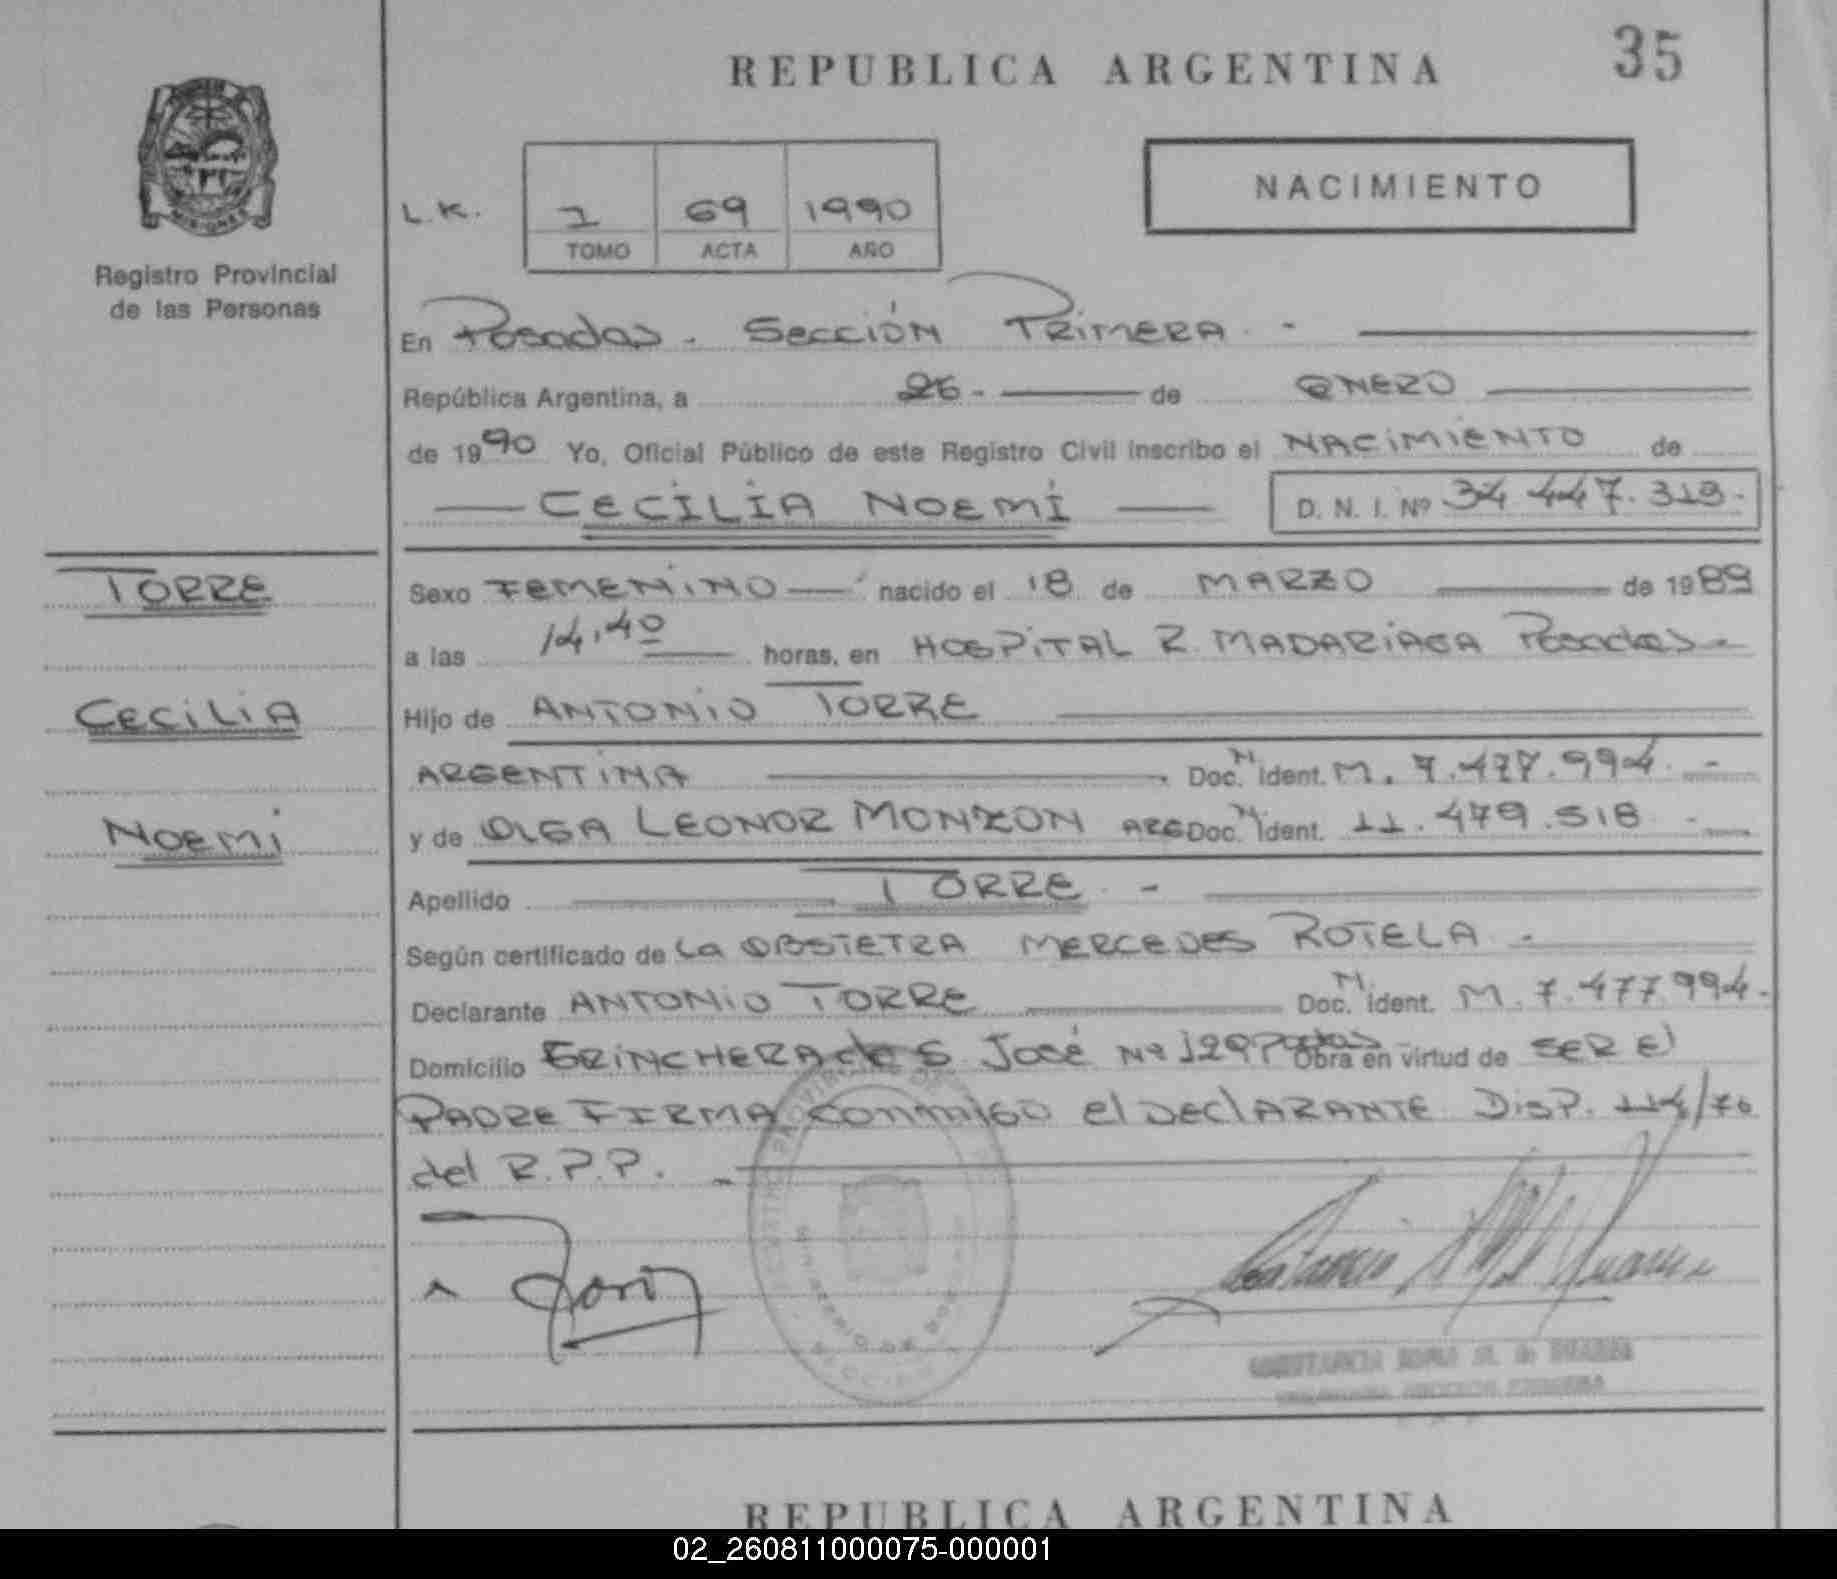 REPUBLICA ARGENTINA
35
NACIMIENTO
L.K.
1 69 1990
TOMO ACTA AÑO
MISIONES
Registro Provincial
de las Personas
En Posadas. Sección Primera. -
República Argentina, a 26- de enero
de 1990 Yo, Oficial Público de este Registro Civil inscribo el Nacimiento de
CECILIA NOEMÍ D. N. I. Nº 34.447.313.
TORRE
Cecilia
Noemí
Sexo FEMENINO nacido el 18 de MARZO de 1989
a las 14,40 horas, en HOSPITAL R. MADARIAGA Posadas-
Hijo de ANTONIO TORRE
ARGENTINA Doc. N Ident. M. 7.477.994. -
y de OLGA LEONOR MONZON ARG Doc. N Ident. 11.479.518 . -
Apellido TORRE. -
Según certificado de La OBSTETRA MERCEDES ROTELA .
Declarante ANTONIO TORRE Doc. N Ident. M. 7.477.994.-
Domicilio TRINCHERA de S. José Nº 129 Obra en virtud de SER El
PADRE FIRMA conmigo el DEClARANTE DISP. 114/70
del R.P.P. -
REPUBLICA ARGENTINA
02_260811000075-000001